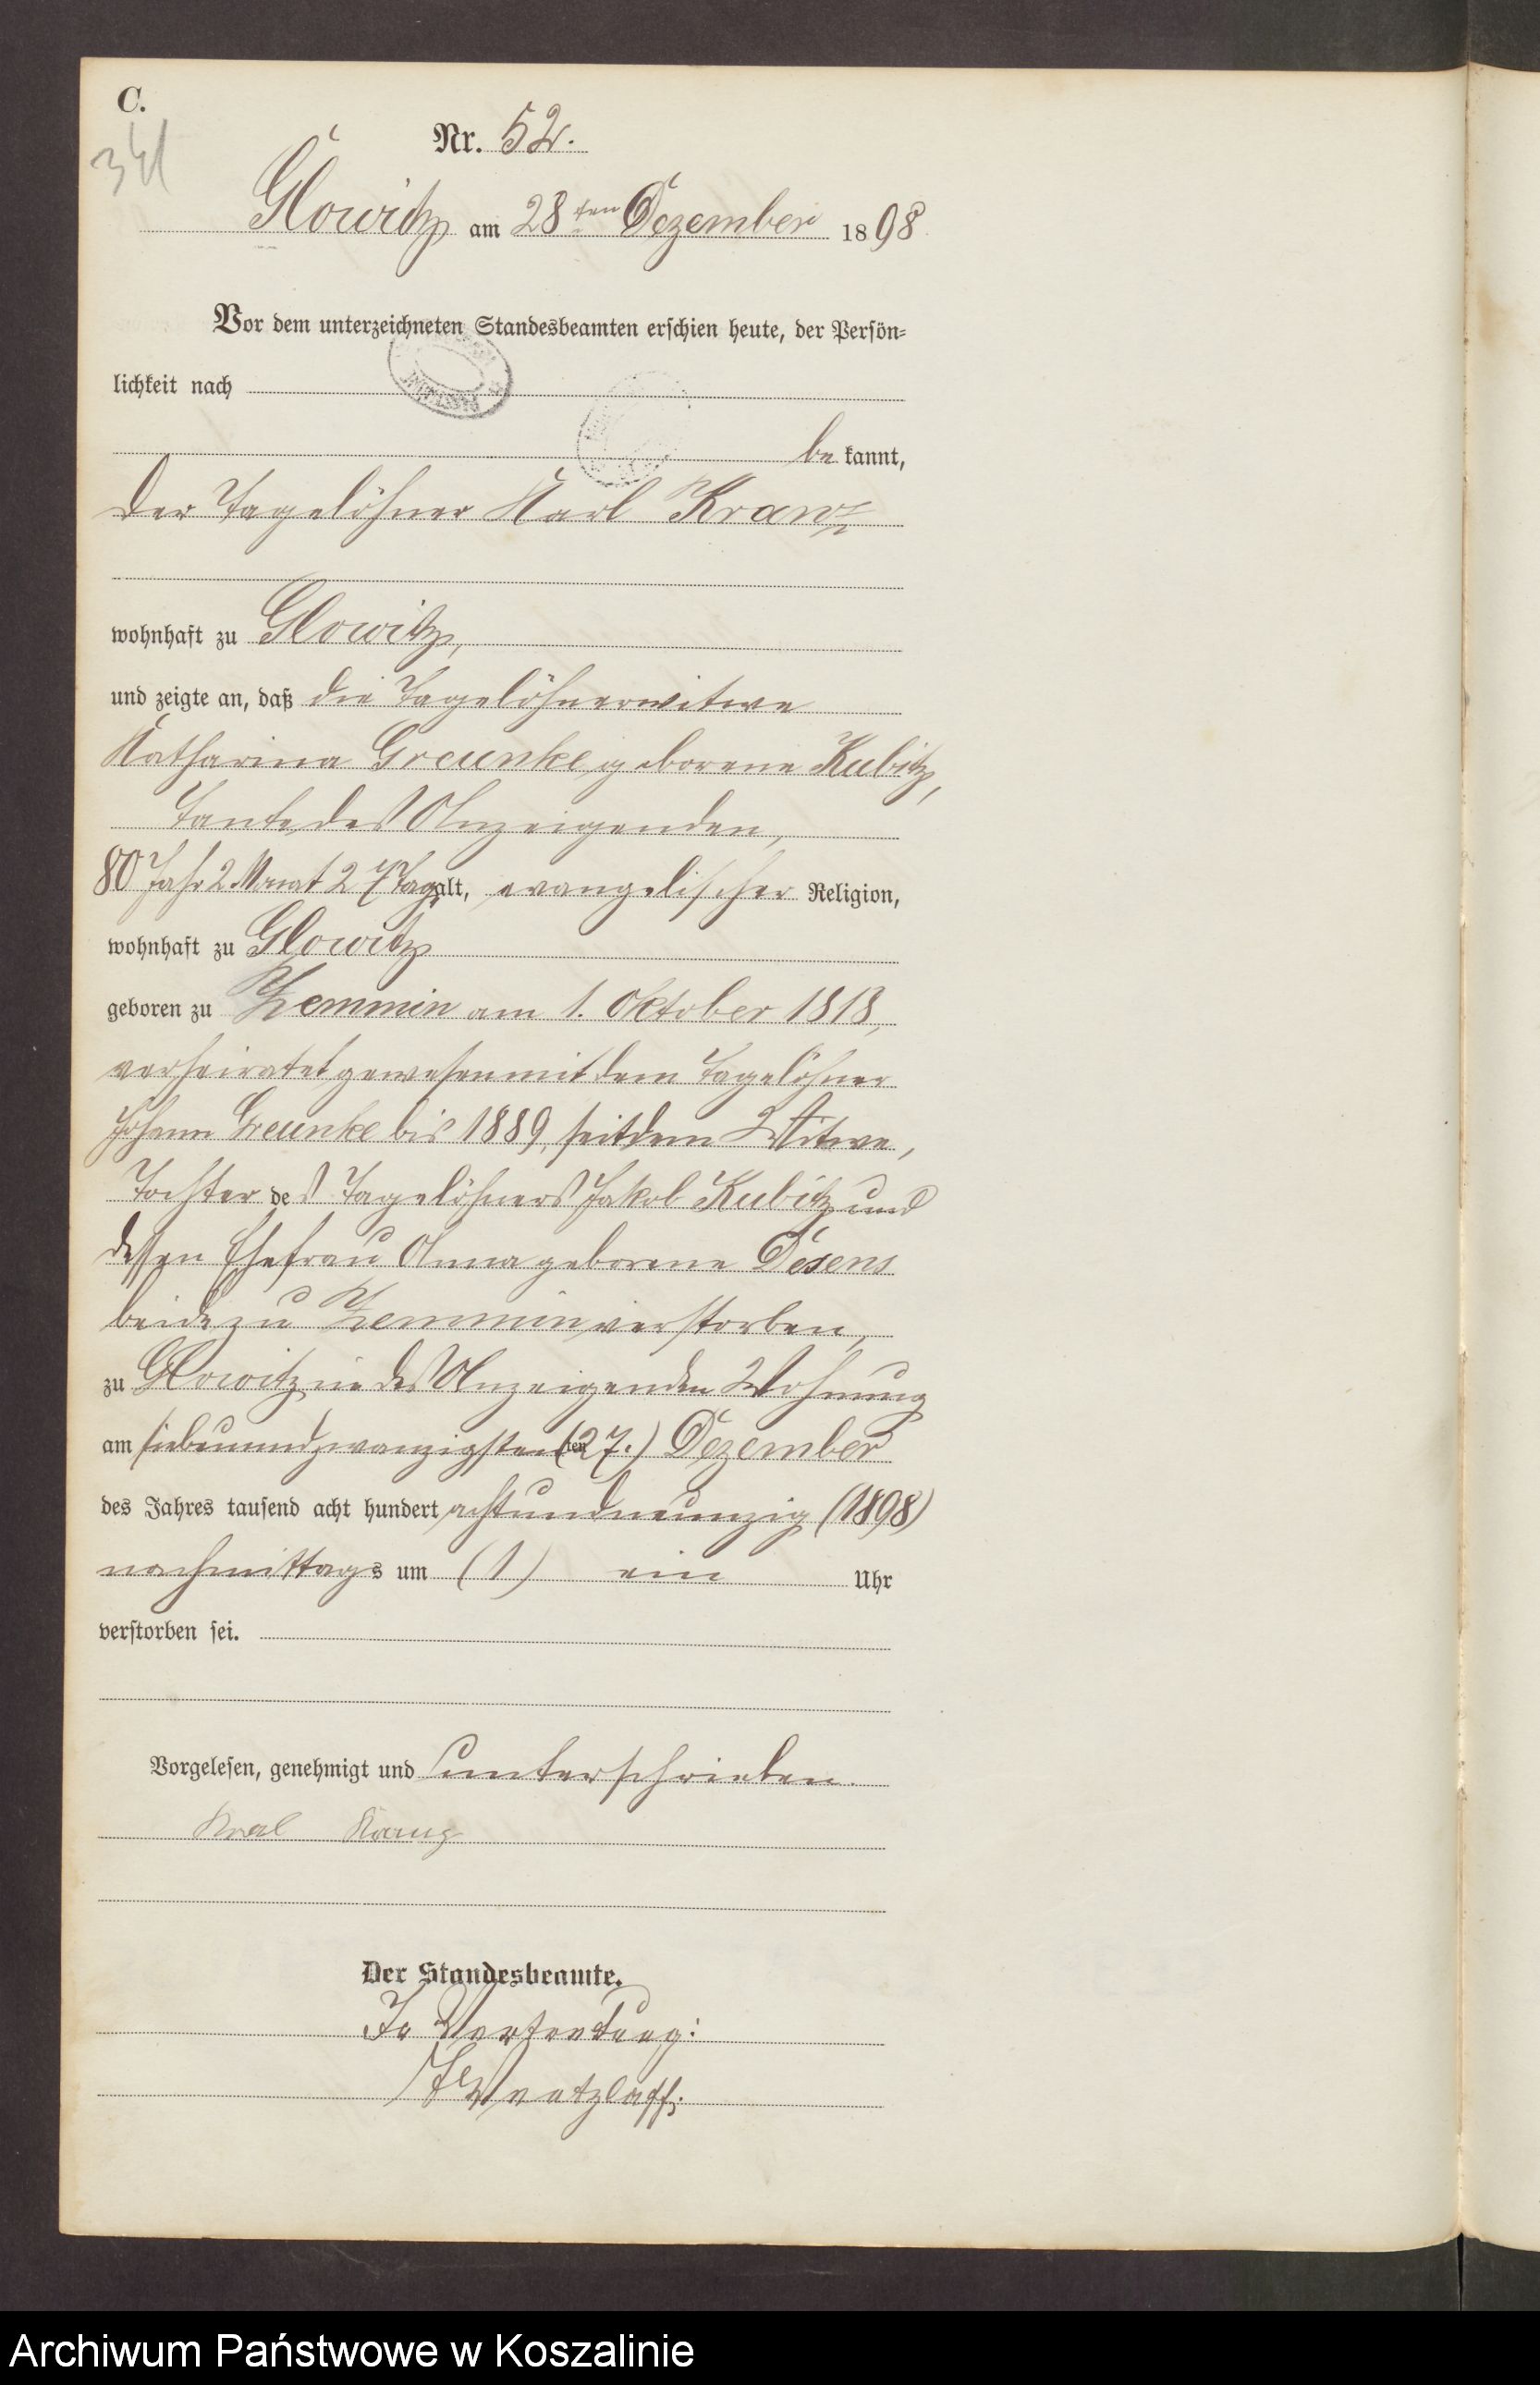 C.
341
Nr. 52.
Glowitz am 28ten Dezember 1898
Vor dem unterzeichneten Standesbeamten erschien heute, der Persön-
lichkeit nach
be kannt,
der Tagelöhner Karl Kranz
wohnhaft zu Glowitz,
und zeigte an, daß die Tagelöhnerwitwe
Katharina Greunke geborene Kubitz,
Tante des Anzeigenden,
80 Jahr 2 Monat 27 Tage alt, evangelischer Religion,
wohnhaft zu Glowitz
geboren zu Zemmin am 1. Oktober 1818,
verheiratet gewesen mit dem Tagelöhner
Johann Greunke bis 1889, seitdem Witwe,
Tochter des Tagelöhners Jakob Kubitz und
dessen Ehefrau Anna geborene Desens
beide zu Zemmin verstorben,
zu Glowitz in des Anzeigenden Wohnung
am siebenundzwanzigsten ten (27.) Dezember
des Jahres tausend acht hundert achtundneunzig (1898)
nachmittags um (1) ein Uhr
verstorben sei.
Vorgelesen, genehmigt und unterschrieben.
Kral Kranz
Der Standesbeamte.
In Vertretung:
Wentzlaff.
Archiwum Państwowe w Koszalinie